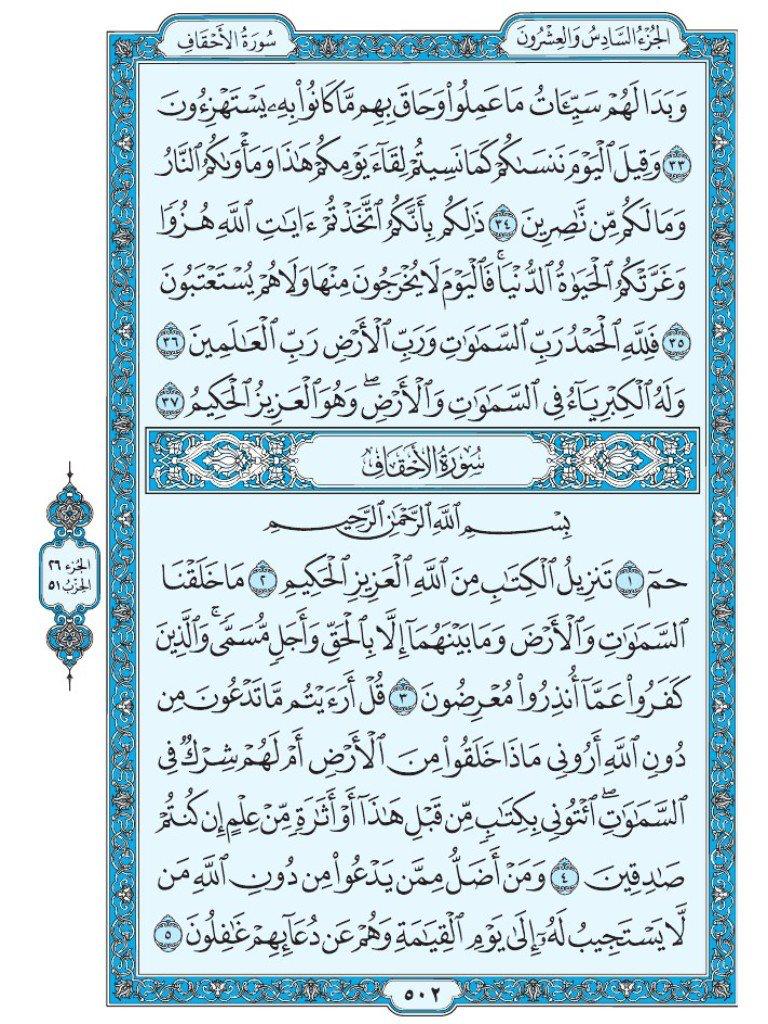 الجُزْءُ السَّادِسُ وَالعِشْرُونَ
سُورَةُ الأَحْقَافِ
وَبَدَا لَهُمْ سَيِّـَٔاتُ مَا عَمِلُوا۟ وَحَاقَ بِهِم مَّا كَانُوا۟ بِهِۦ يَسْتَهْزِءُونَ
٣٣ وَقِيلَ ٱلْيَوْمَ نَنسَىٰكُمْ كَمَا نَسِيتُمْ لِقَآءَ يَوْمِكُمْ هَٰذَا وَمَأْوَىٰكُمُ ٱلنَّارُ
وَمَا لَكُم مِّن نَّٰصِرِينَ ٣٤ ذَٰلِكُم بِأَنَّكُمُ ٱتَّخَذْتُمْ ءَايَٰتِ ٱللَّهِ هُزُوًا
وَغَرَّتْكُمُ ٱلْحَيَوٰةُ ٱلدُّنْيَا ۚ فَٱلْيَوْمَ لَا يُخْرَجُونَ مِنْهَا وَلَا هُمْ يُسْتَعْتَبُونَ
٣٥ فَلِلَّهِ ٱلْحَمْدُ رَبِّ ٱلسَّمَٰوَٰتِ وَرَبِّ ٱلْأَرْضِ رَبِّ ٱلْعَٰلَمِينَ ٣٦
وَلَهُ ٱلْكِبْرِيَآءُ فِى ٱلسَّمَٰوَٰتِ وَٱلْأَرْضِ ۖ وَهُوَ ٱلْعَزِيزُ ٱلْحَكِيمُ ٣٧
سُورَةُ الأَحْقَافِ
بِسْمِ ٱللَّهِ ٱلرَّحْمَٰنِ ٱلرَّحِيمِ
حمٓ ١ تَنزِيلُ ٱلْكِتَٰبِ مِنَ ٱللَّهِ ٱلْعَزِيزِ ٱلْحَكِيمِ ٢ مَا خَلَقْنَا
ٱلسَّمَٰوَٰتِ وَٱلْأَرْضَ وَمَا بَيْنَهُمَآ إِلَّا بِٱلْحَقِّ وَأَجَلٍ مُّسَمًّى ۚ وَٱلَّذِينَ
كَفَرُوا۟ عَمَّآ أُنذِرُوا۟ مُعْرِضُونَ ٣ قُلْ أَرَءَيْتُم مَّا تَدْعُونَ مِن
دُونِ ٱللَّهِ أَرُونِى مَاذَا خَلَقُوا۟ مِنَ ٱلْأَرْضِ أَمْ لَهُمْ شِرْكٌ فِى
ٱلسَّمَٰوَٰتِ ۖ ٱئْتُونِى بِكِتَٰبٍ مِّن قَبْلِ هَٰذَآ أَوْ أَثَٰرَةٍ مِّنْ عِلْمٍ إِن كُنتُمْ
صَٰدِقِينَ ٤ وَمَنْ أَضَلُّ مِمَّن يَدْعُوا۟ مِن دُونِ ٱللَّهِ مَن
لَّا يَسْتَجِيبُ لَهُۥٓ إِلَىٰ يَوْمِ ٱلْقِيَٰمَةِ وَهُمْ عَن دُعَآئِهِمْ غَٰفِلُونَ ٥
الجُزء ٢٦
الحِزبُ ٥١
٥٠٢